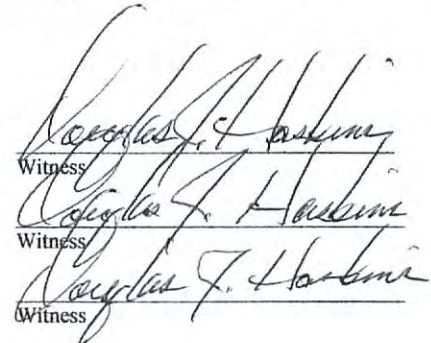 Douglas J. Haskins
Witness
Douglas J. Haskins
Witness
Douglas J. Haskins
Witness